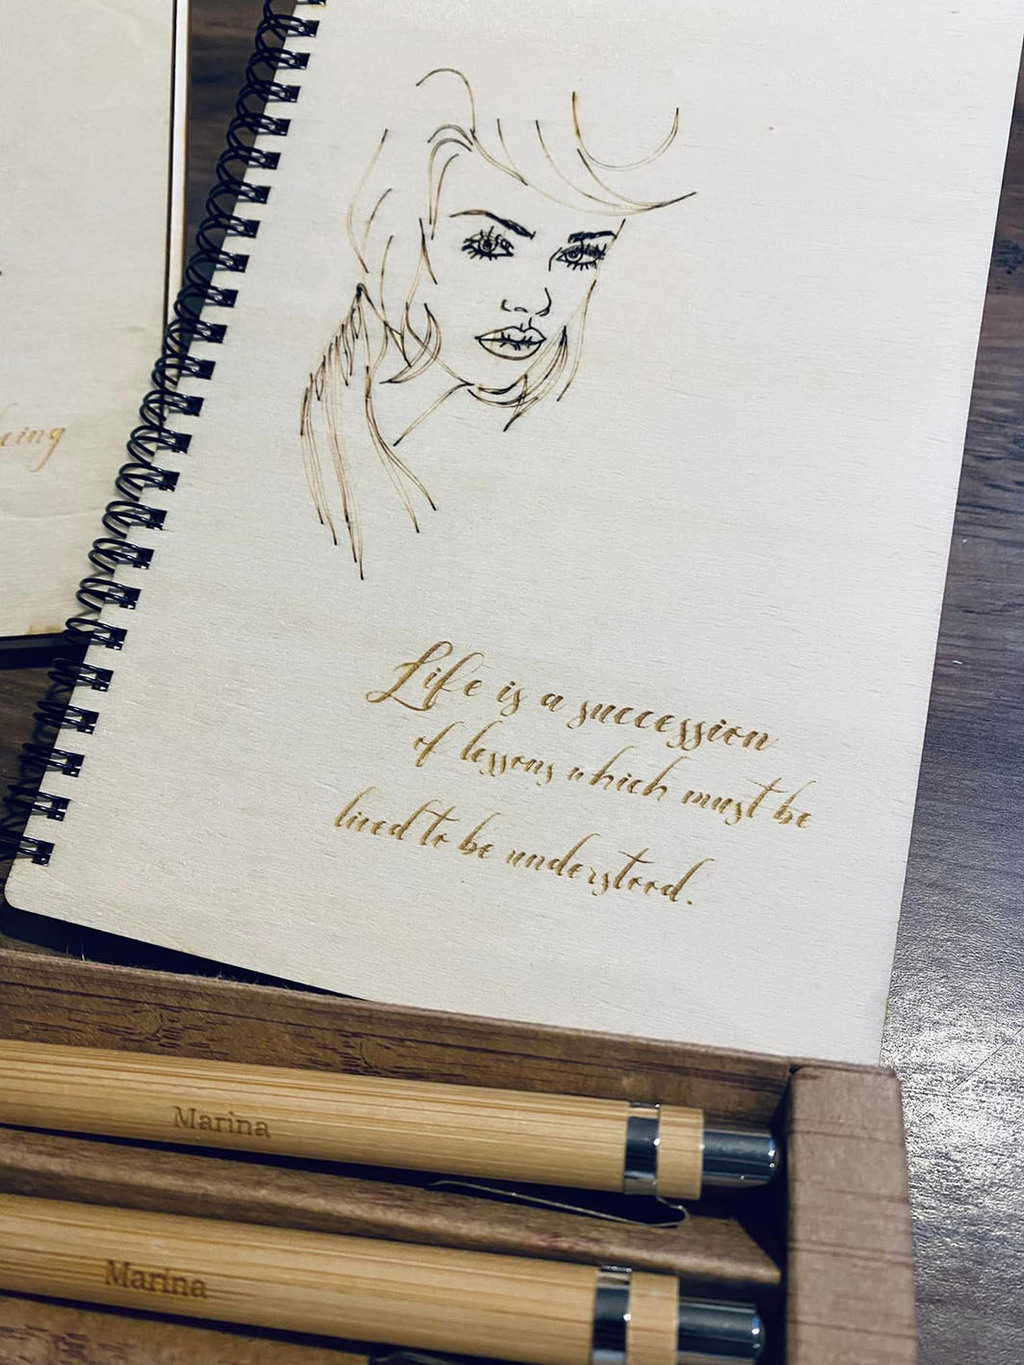 eing
Life is a succession
of lessons which must be
lived to be understood.
Marina
Marina